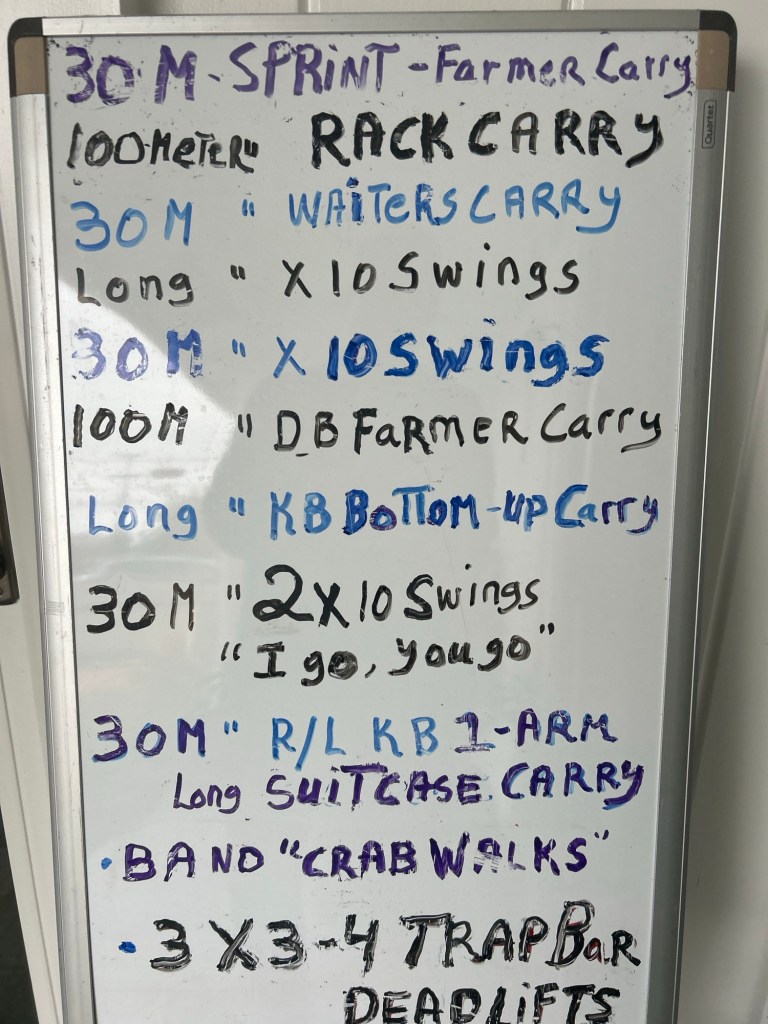 30 M - SPRiNT - Farmer Carry
Quartet
100 METER " RACK CARRY
30 M " WAiTERS CARRY
Long " X 10 Swings
30 M " X 10 Swings
100 M " DB FARMER Carry
Long " KB BoTTOM-UP Carry
30 M " 2X10 Swings
"I go, you go"
30 M " R/L KB 1-ARM
Long SUiTCASE CARRY
• BAND "CRAB WALKS"
• 3 X 3-4 TRAP BaR
DEADLiFTS